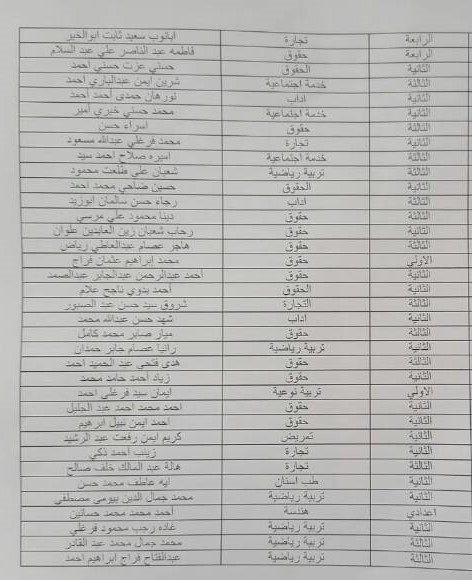 ابانوب سعيد ثابت ابوالخير تجارة الرابعة
فاطمه عبد الناصر علي عبد السلام حقوق الرابعة
حسني عزت حسني احمد الحقوق الثانية
شرين ايمن عبدالباري احمد خدمة اجتماعية الثالثة
نورهان حمدى احمد احمد اداب الثانية
محمد حسني خيري امير خدمة اجتماعية الثانية
اسراء حسن حقوق الثالثة
محمد فرغلي عبدالله مسعود تجارة الثانية
اميره صلاح احمد سيد خدمة اجتماعية الثالثة
شعبان علي طلعت محمود تربية رياضية الثالثة
حسين ضاحي محمد احمد الحقوق الثانية
رجاء حسن سالمان ابوزيد اداب الثالثة
دينا محمود علي مرسي حقوق الثالثة
رحاب شعبان زين العابدين علوان حقوق الثانية
هاجر عصام عبدالعاطي رياض حقوق الثالثة
محمد ابراهيم عثمان فراج حقوق الاولي
احمد عبدالرحمن عبدالجابر عبدالصمد حقوق الثانية
أحمد بدوي ناجح علام الحقوق الثانية
شروق سيد حسن عبد الصبور التجارة الثالثة
شهد حسن عبدالله محمد اداب الثانية
ميار صابر محمد كامل حقوق الثالثة
رانيا عصام جابر حمدان تربية رياضية الثانية
هدى فتحى عبد الحميد احمد حقوق الثالثة
زياد احمد حامد محمد حقوق الثانية
ايمان سيد فرغلي احمد تربية نوعية الاولي
احمد محمد احمد عبد الجليل حقوق الثانية
احمد ايمن نبيل ابرهيم حقوق الثالثة
كريم ايمن رفعت عبد الرشيد تمريض الثانية
زينب احمد ذكي تجارة الثانية
هالة عبد المالك خلف صالح تجارة الثالثة
ايه عاطف محمد حسن طب اسنان الثانية
محمد جمال الدين بيومى مصطفى تربية رياضية الثانية
أحمد محمد محمد حسانين هندسة اعدادي
غاده رجب محمود فرغلي تربية رياضية الثانية
محمد جمال محمد عبد القادر تربية رياضية الثالثة
عبدالفتاح فراج ابراهيم احمد تربية رياضية الثالثة